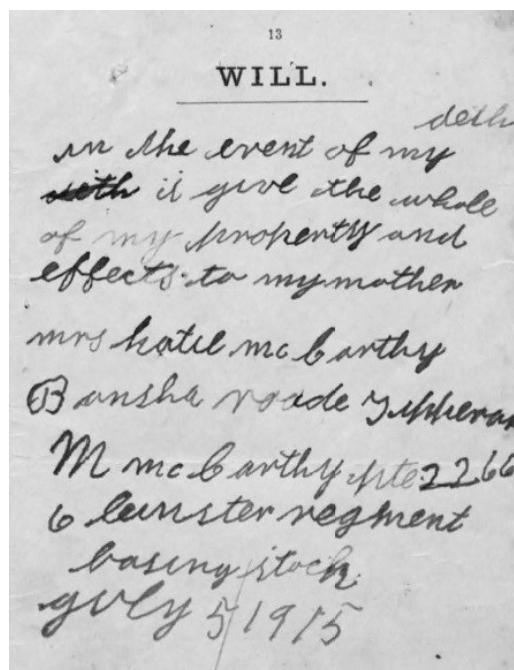 13
WILL.
deth
in the event of my
deth i give the whole
of my property and
effects to my mother
mrs katie mc Carthy
Bansha roade Tipperary
M mc Carthy pte 2266
6 leinster regment
basing stock
guly 5 1915